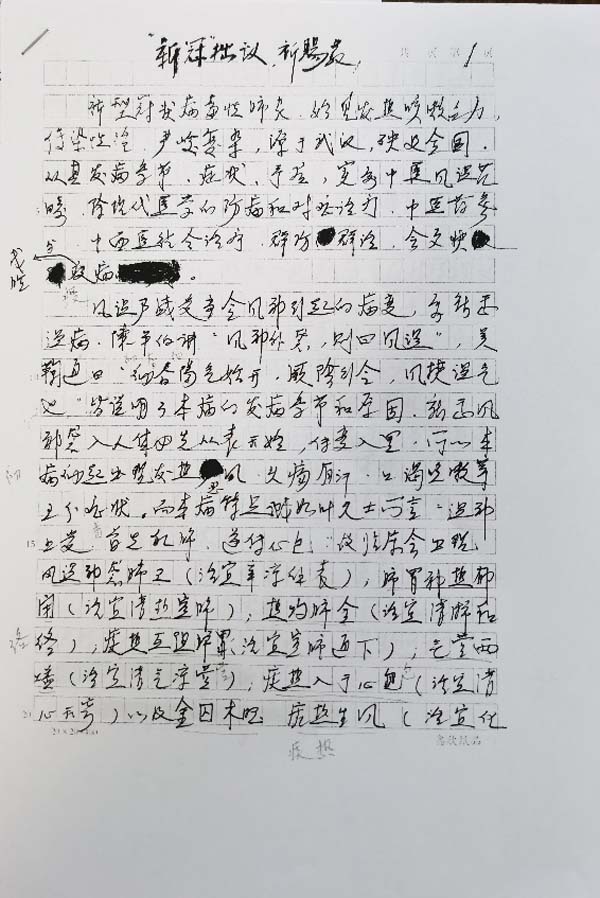 "新冠"拙议 靳赐最
共 页 第 1 页
新型冠状病毒性肺炎，始见发热咳嗽乏力，
传染性泛，严峻复杂，源于武汉，殃及全国。
从其发病季节、症状、预，宽为中医风温范
畴，除现代医学的防病和对症治疗，中医药参
中西医结合治疗，群防群治，会更快
与
战胜
疫病。
风温乃感受字令风邪引起的病变，多新感
温病，陈平伯讲"风邪外袭，则曰风温"，吴
鞠通曰"初春阳气始开，厥阴行令，风挟温气
也"皆说明了本病的发病季节和原因，新感风
邪袭入人体必先从表开始，传变入里，所以本
病初起出现发热恶风，头痛有汗，口渴咳嗽等
卫分症状，而本病特点诚如叶天士所言"温邪
上受，首先犯肺，逆传心包"故临床会出现
风温邪袭肺卫（治宜辛凉解表），肺胃邪热郁
闭（治宜清热宣肺），热灼肺金（治宜清肺和
络），痰热互阻肺胃（治宜宣肺通下），气营两
燔（治宜清气凉营），痰热入于心包（治宜清
心开窍）以及金囚木旺 痰热生风（治宜化
15
20×20=400
痰热